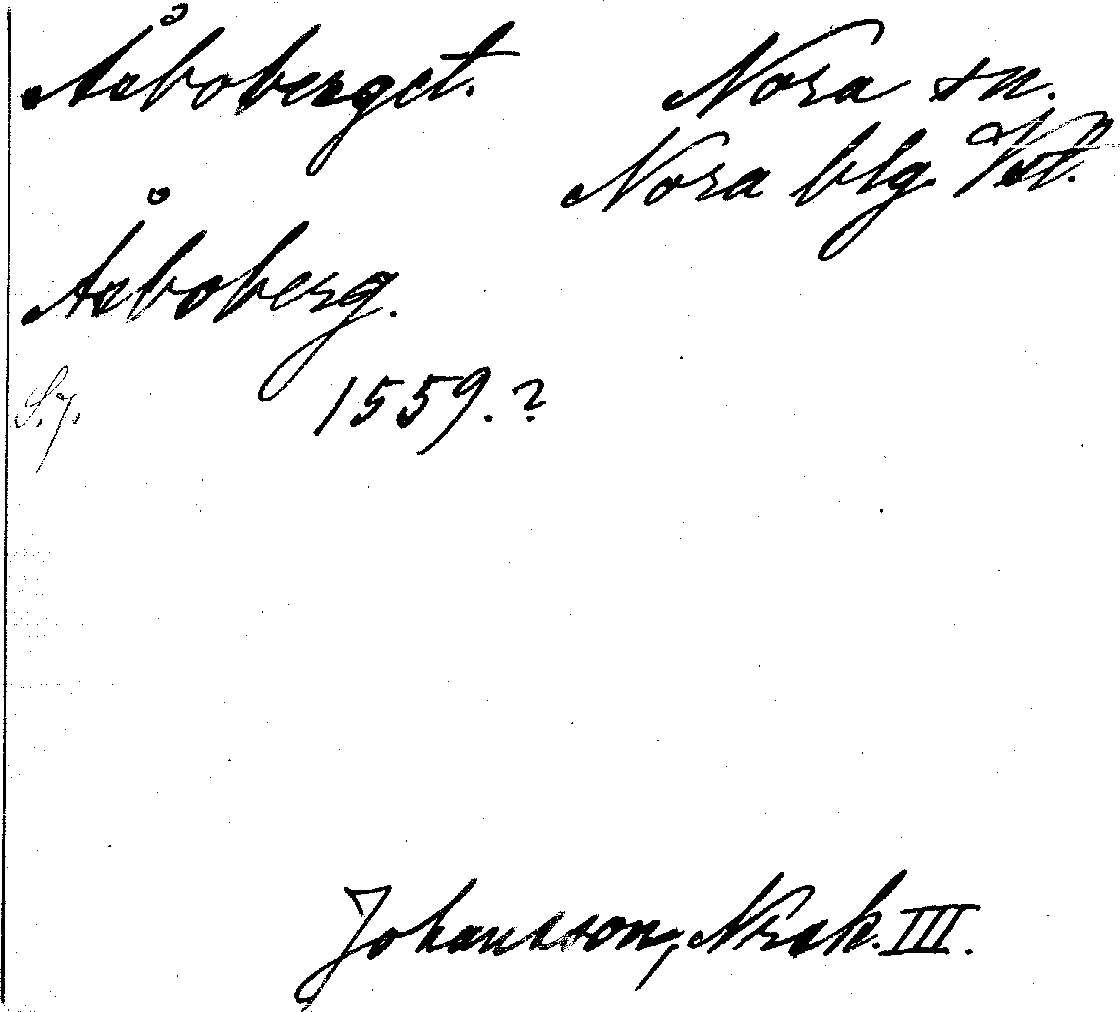 Åsboberget. Nora sn.
Nora blg. Vst.
Åsboberg.
S. 7. 1559.?
Johansson, Nrsk. III.